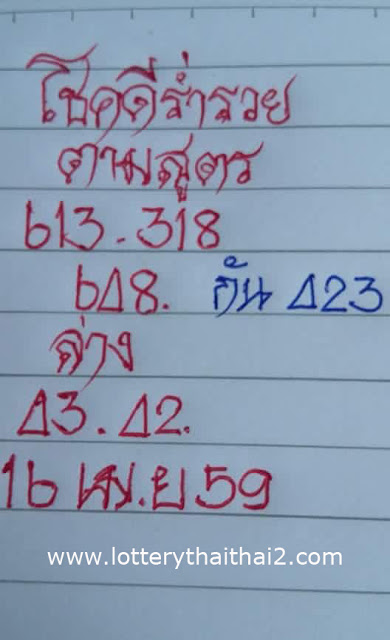 โชคดีร่ำรวย
ตามสูตร
613-318
648. กัน 423
ล่าง
43. 42.
16 เม.ย 59
www.lotterythaithai2.com